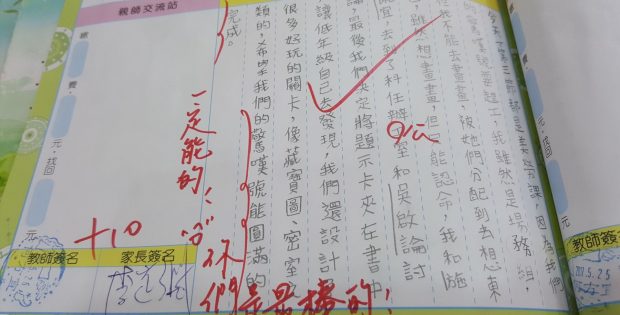 都是美勞課,因為我們
的驚嘆號要趕工,我雖然是場務組,
我不能去畫畫,被她們分配到去想東
,雖然想畫畫,但只能認命,我和施
宜,去到了科任辦室和吳啟論討
論,最後我們決定將題示卡夾在書中
讓低年級自己去發現,我們還設計
很多好玩的關卡,像藏寶圖、密室
類的,希望我們的驚嘆號能圓滿的
完成。
公
一定能的!
你們是最棒的!
+10
分
親師交流站
繳
費
元,找回
元
繳
費
元,找回
元
教師簽名
家長簽名
教師簽名
5.25